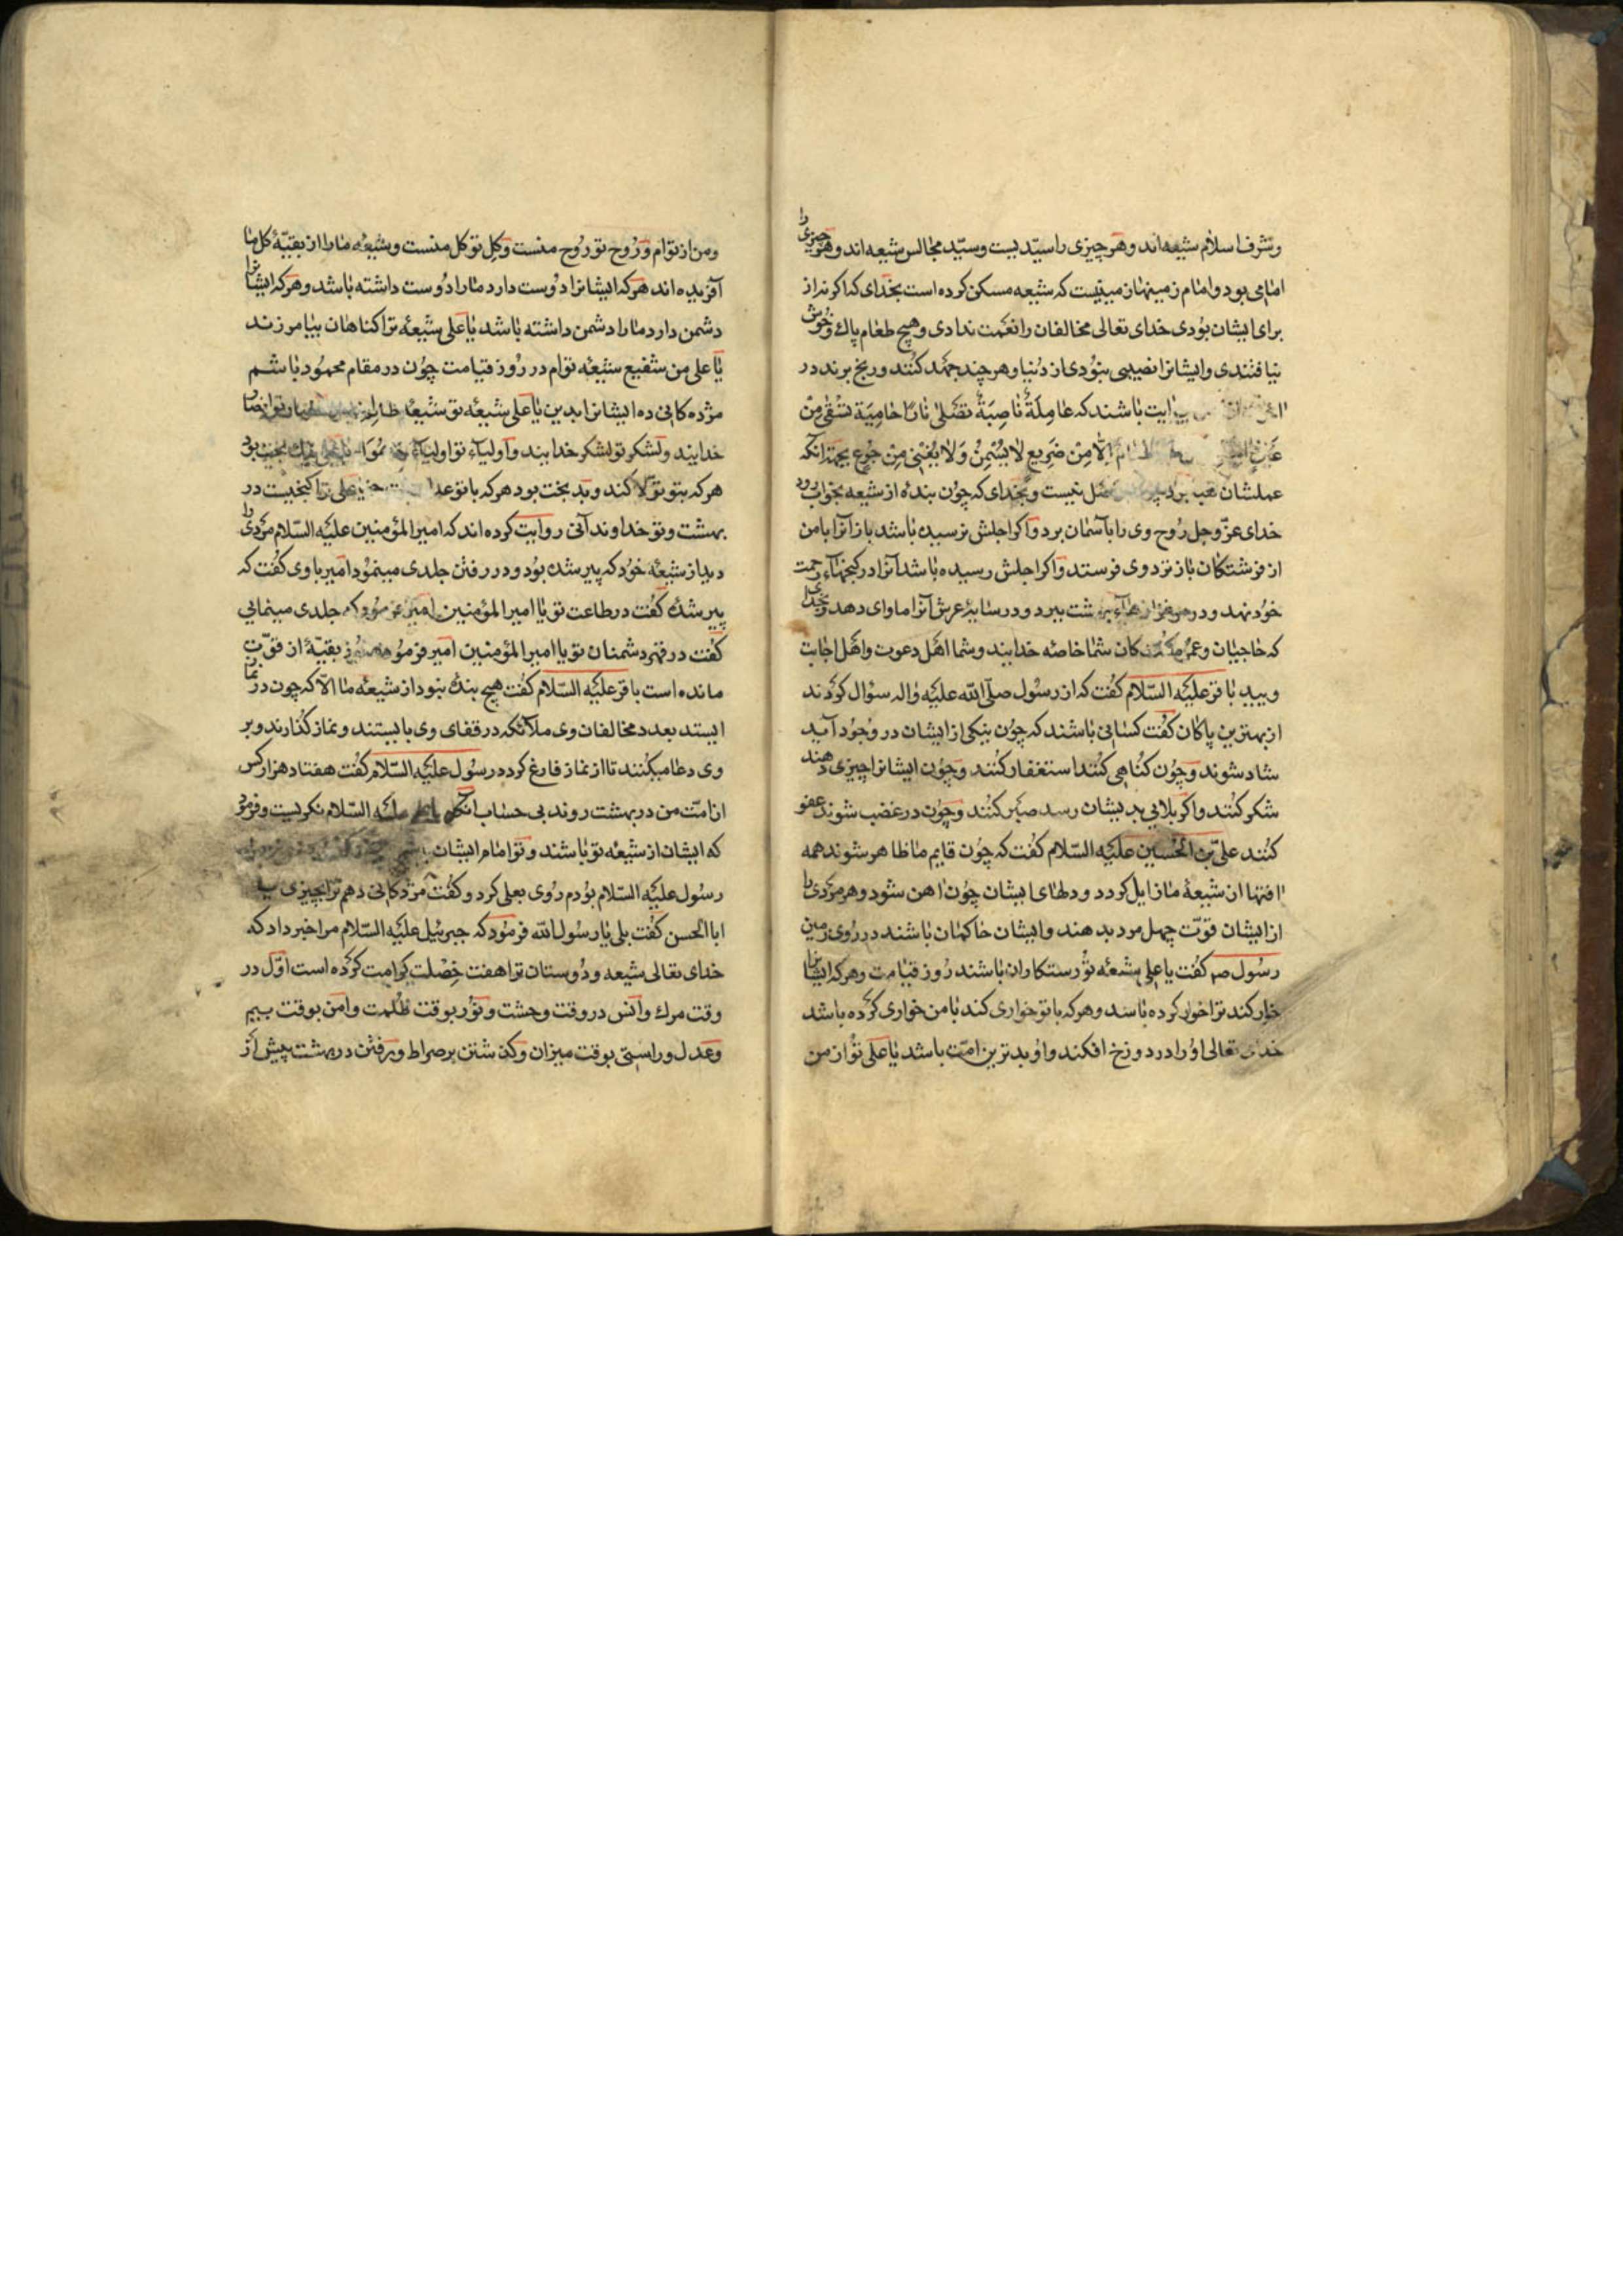 وشرف اسلام شیعه‌اند وهر چیزی را سیّدیست وسیّد مجالس شیعه‌اند وهر چیزی را
امامی بود وامام زمینها زمینیست که شیعه مسکن کرده است بخدای که اکر نه از
برای ایشان بودی خدای تعالی مخالفان را نعمت ندادی وهیچ طعام پاک وخوش
نیافتندی وایشانرا نصیبی نبودی از دنیا وهر چند جهد کنند ورنج برند در
آیت باشند که عَامِلَةٌ نَاصِبَةٌ تَصْلیٰ نَارًا حَامِیَة تُسْقٰی مِنْ
اِلّا مِنْ ضَرِیع لَا یُسْمِنُ وَلَا یُغْنِی مِنْ جُوع بجهة آنکه
عملشان نیست وبخدای که چون بندهٔ از شیعه بخواب رود
خدای عزّ وجل روح وی را بآسمان برد واکر اجلش نرسیده باشد باز آنرا با من
از فرشتکان باز نزد وی فرستد واکر اجلش رسیده باشد آنرا در کنجهاء رحمت
خود نهد ودر بهشت ببرد ودر سایهٔ عرش آنرا ماوای دهد وبخدای
که حاجیان وعمره کنندکان شما خاصهٔ خدایند وشما اهل دعوت واهل اجابت
ویید باقر علیه السّلام کفت که از رسول صلّی الله علیه واله سؤال کردند
از بهترین پاکان کفت کسانی باشند که چون نیکی از ایشان در وجود آید
شاد شوند وچون کناهی کنند استغفار کنند وچون ایشانرا چیزی دهند
شکر کنند واکر بلایی بدیشان رسد صبر کنند وچون در غضب شوند عفو
کنند علیّ بن الحسین علیه السّلام کفت که چون قایم ما ظاهر شود همه
آفتها از شیعهٔ ما زایل کردد ودلهای ایشان چون آهن شود وهر مردی را
از ایشان قوّت چهل مرد بدهند وایشان حاکمان باشند در روی زمین
رسول صم کفت یا علی شیعهٔ تو رستکاران باشند روز قیامت وهر که ایشانرا
خوار کند ترا خوار کرده باشد وهر که با تو خواری کند با من خواری کرده باشد
خدای تعالی او را در دوزخ افکند واو بدترین امّت باشد یا علی تو از من
ومن از توام وروح تو روح منست وکِل تو کل منست وشیعهٔ ما را از بقیّهٔ کل ما
آفریده‌اند هر که ایشانرا دوست دارد ما را دوست داشته باشد وهر که ایشانرا
دشمن دارد ما را دشمن داشته باشد یا علی شیعهٔ ترا کناهان بیامرزند
یا علی من شفیع شیعهٔ توام در روز قیامت چون در مقام محمود باشم
مژده‌کانی ده ایشانرا بدین یا علی شیعهٔ تو شیعهٔ
خدایند ولشکر تو لشکر خدایند واولیآء تو اولیآء
هر که بتو تولّا کند وبدبخت بود هر که با تو علی ترا کنجیست در
بهشت وتو خداوند آنی روایت کرده‌اند که امیر المؤمنین علیه السّلام مردی را
دید از شیعهٔ خود که پیر شده بود ودر رفتن جلدی مینمود امیر با وی کفت که
پیر شدهٔ کفت در طاعت تو یا امیر المؤمنین امیر فرمود که جلدی مینمایی
کفت در قهر دشمنان تو یا امیر المؤمنین امیر فرمود هنوز بقیّهٔ از قوّت
مانده است باقر علیه السّلام کفت هیچ بندهٔ نبود از شیعهٔ ما الّا که چون در نماز
ایستد بعدد مخالفان وی ملآئکه در قفای وی بایستند ونماز کذارند وبر
وی دعا میکنند تا از نماز فارغ کردد رسول علیه السّلام کفت هفتاد هزار کس
از امّت من در بهشت روند بی حساب علیه السّلام نکریست وفرمود
که ایشان از شیعهٔ تو باشند وتو امام ایشان
رسول علیه السّلام بودم روی بعلی کرد وکفت مژدکانی دهم ترا بچیزی یا
ابا الحسن کفت بلی یا رسول الله فرمود که جبرئیل علیه السّلام مرا خبر داد که
خدای تعالی شیعه ودوستان ترا هفت خصلت کرامت کرده است اوّل در
وقت مرک وانس در وقت وحشت ونور بوقت ظلمت وامن بوقت بیم
وعدل وراستی بوقت میزان وکذشتن بر صراط ورفتن در بهشت پیش از